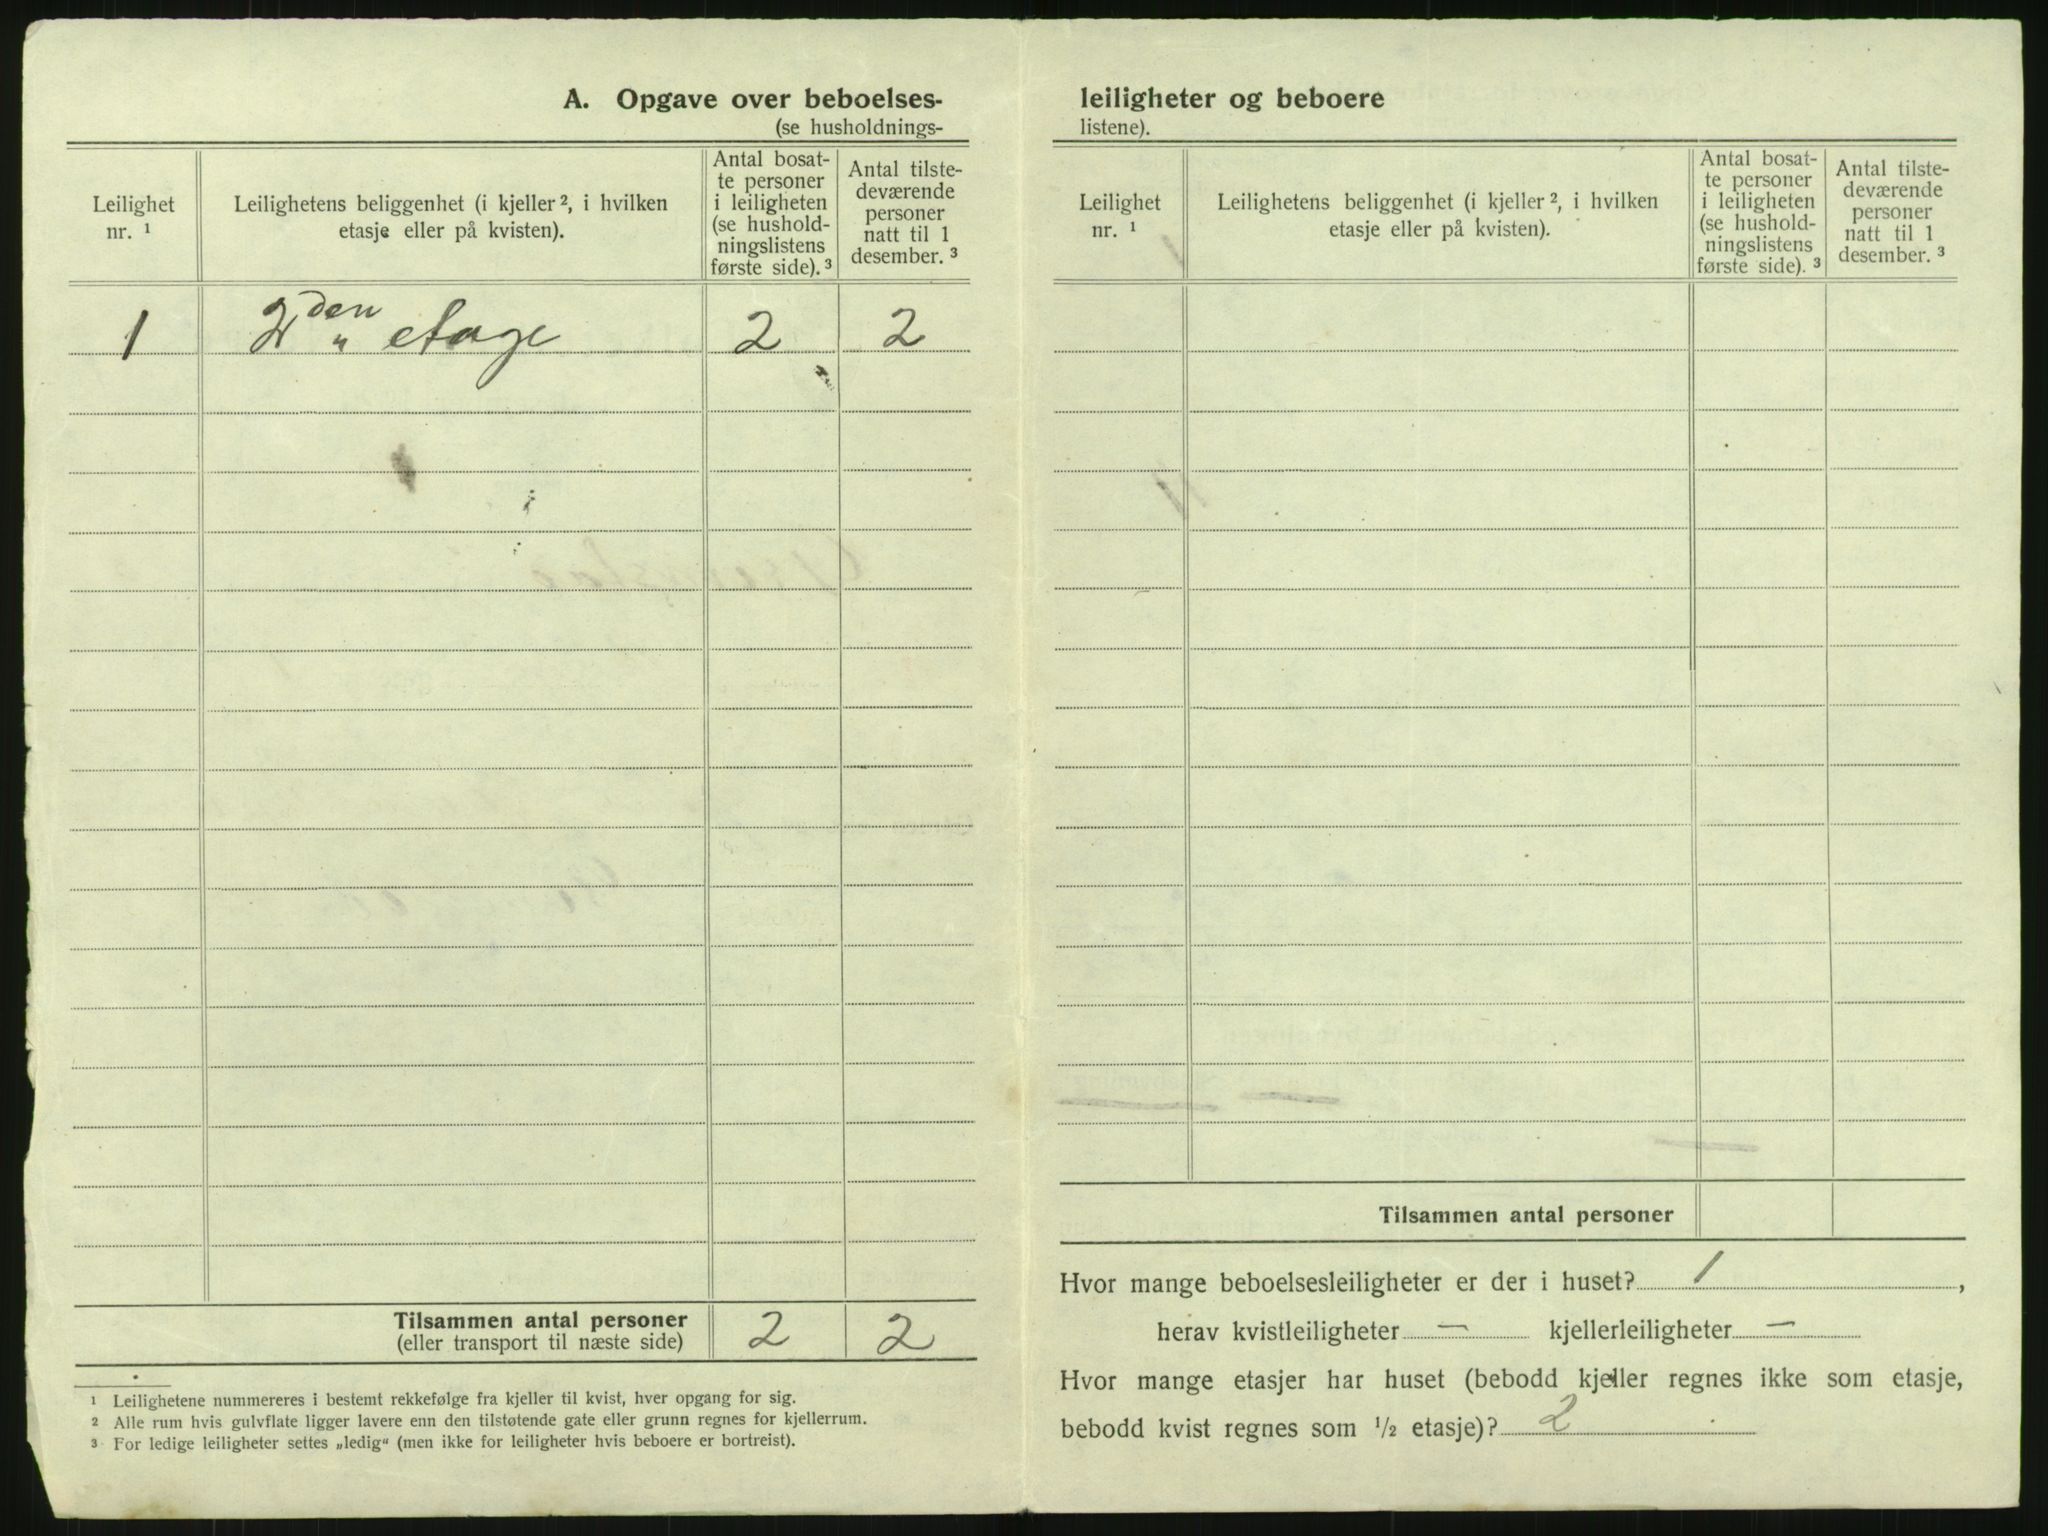 A. Opgave over beboelses-
(se husholdnings-
Leilighet
nr. ¹
Leilighetens beliggenhet (i kjeller ², i hvilken
etasje eller på kvisten).
Antal bosat-
te personer
i leiligheten
(se hushold-
ningslistens
første side). ³
Antal tilste-
deværende
personer
natt til 1
desember. ³
1 2den etage 2 2
Tilsammen antal personer 2 2
(eller transport til næste side)
¹ Leilighetene nummereres i bestemt rekkefølge fra kjeller til kvist, hver opgang for sig.
² Alle rum hvis gulvflate ligger lavere enn den tilstøtende gate eller grunn regnes for kjellerrum.
³ For ledige leiligheter settes „ledig“ (men ikke for leiligheter hvis beboere er bortreist).
leiligheter og beboere
listene).
Leilighet
nr. ¹
Leilighetens beliggenhet (i kjeller ², i hvilken
etasje eller på kvisten).
Antal bosat-
te personer
i leiligheten
(se hushold-
ningslistens
første side). ³
Antal tilste-
deværende
personer
natt til 1
desember. ³
Tilsammen antal personer
Hvor mange beboelsesleiligheter er der i huset? 1 ,
herav kvistleiligheter — kjellerleiligheter —
Hvor mange etasjer har huset (bebodd kjeller regnes ikke som etasje,
bebodd kvist regnes som ½ etasje)? 2